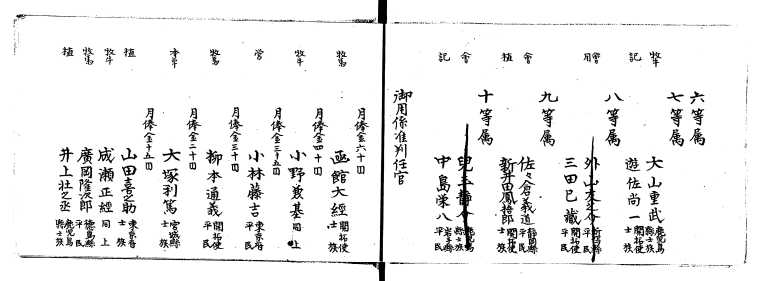 六等属
七等属
牧牛 大山重武 鹿児島縣士族
記 遊佐尚一 開拓使平民
八等属
會 外山 新潟縣平民
月 三田已蔵 開拓使平民
九等属
會 佐々倉義道 静岡縣士族
植 新井田鳳哲郎 開拓使平民
十等属
會 兒玉 鹿児島縣士族
記 中島栄八 岩手縣平民
御用係准判任官
月俸金六十円
牧馬 函館大経 開拓使士族
月俸金四十円
牧牛 小野義基 同上
月俸金三十五円
営 小林藤吉 東京府平民
月俸金三十円
牧馬 柳本通義 開拓使平民
月俸金二十円
本草 大塚利篤 宮城縣士族
月俸金十五円
植 山田喜之助 東京府士族
牧牛 成瀬正経 同上
牧馬 廣岡隆次郎 徳島縣平民
植 井上壮之丞 鹿児島縣士族